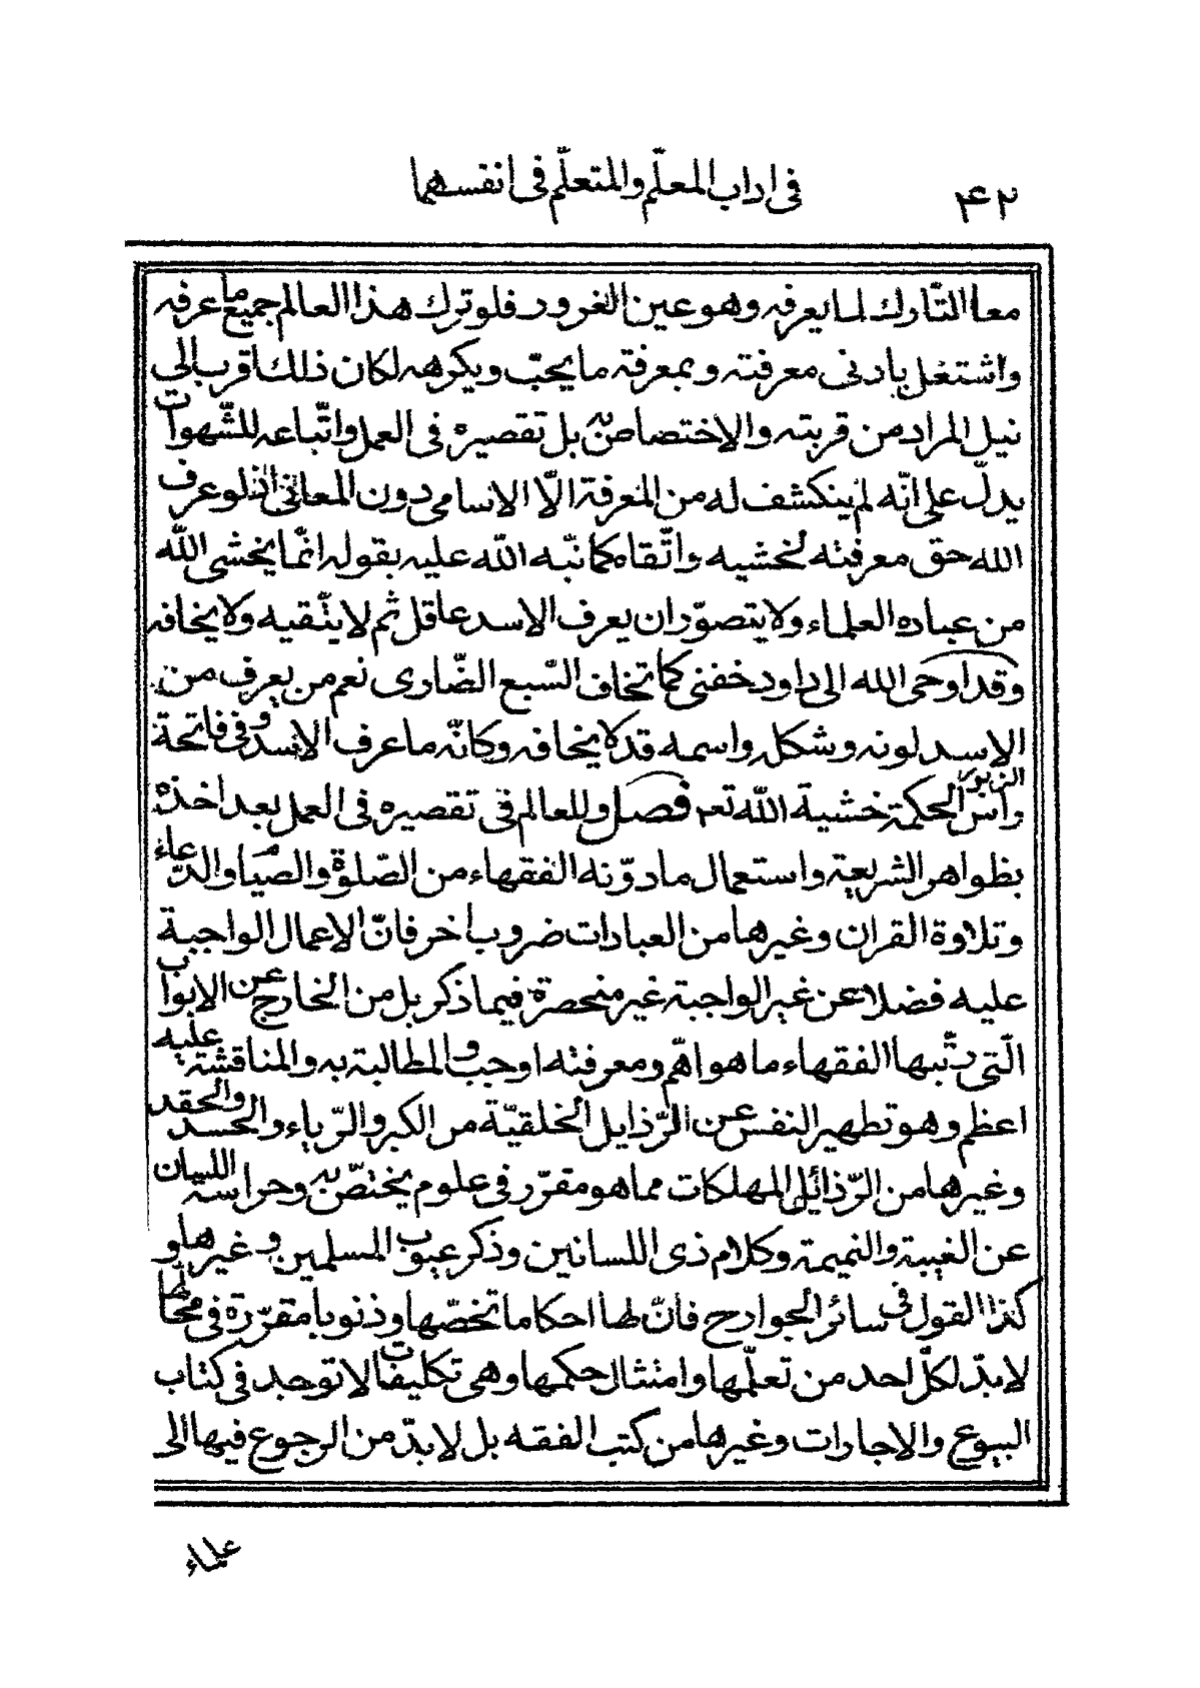 ۴۲
فی اداب المعلّم والمتعلّم فی انفسهما
معا التّارك لما يعرفه وهو عين الغرور فلو ترك هذا العالم جميع ما عرفه
واشتغل بادنی معرفته وبمعرفة ما يحبّ ويكرهه لكان ذلك اقرب الی
نيل المراد من قربته والاختصاص به بل تقصيره فی العمل واتّباعه للشّهوات
يدلّ علی انّه لم ينكشف له من المعرفة الّا الاسامی دون المعانی اذ لو عرف
الله حق معرفته لخشيه واتّقاه كما نبّه الله عليه بقوله انّما يخشی الله
من عباده العلماء ولا يتصوّر ان يعرف الاسد عاقل ثم لا يتّقيه ولا يخافه
وقد اوحی الله الی داود خفنی كما تخاف السّبع الضّاری نعم من يعرف من
الاسد لونه وشكله واسمه قد لا يخافه وكانّه ما عرف الاسد وفی فاتحة
الزبور راس الحكمة خشية الله تعہ فصل وللعالم فی تقصيره فی العمل بعد اخذه
بظواهر الشريعة واستعمال ما دوّنه الفقهاء من الصّلوة والصّيام والدّعاء
وتلاوة القران وغيرها من العبادات ضروب اخر فانّ الاعمال الواجبة
عليه فضلا عن غير الواجبة غير منحصرة فيما ذكر بل من الخارج عن الابواب
الّتی رتّبها الفقهاء ما هو اهمّ ومعرفته اوجب والمطالبة به والمناقشة عليه
اعظم وهو تطهير النفس عن الرّذايل الخلقيّة من الكبر والرّياء والحسد والحقد
وغيرها من الرّذائل المهلكات مما هو مقرّر فی علوم يختصّ به وحراسة اللسان
عن الغيبة والنميمة وكلام ذی اللسانين وذكر عيوب المسلمين وغيرها و
كذا القول فی سائر الجوارح فانّ لها احكاما تخصّها وذنوبا مقرّرة فی محالّها
لا بدّ لكلّ احد من تعلّمها وامتثال حكمها وهی تكليفات لا توجد فی كتاب
البيوع والاجارات وغيرها من كتب الفقه بل لا بدّ من الرجوع فيها الی
علماء